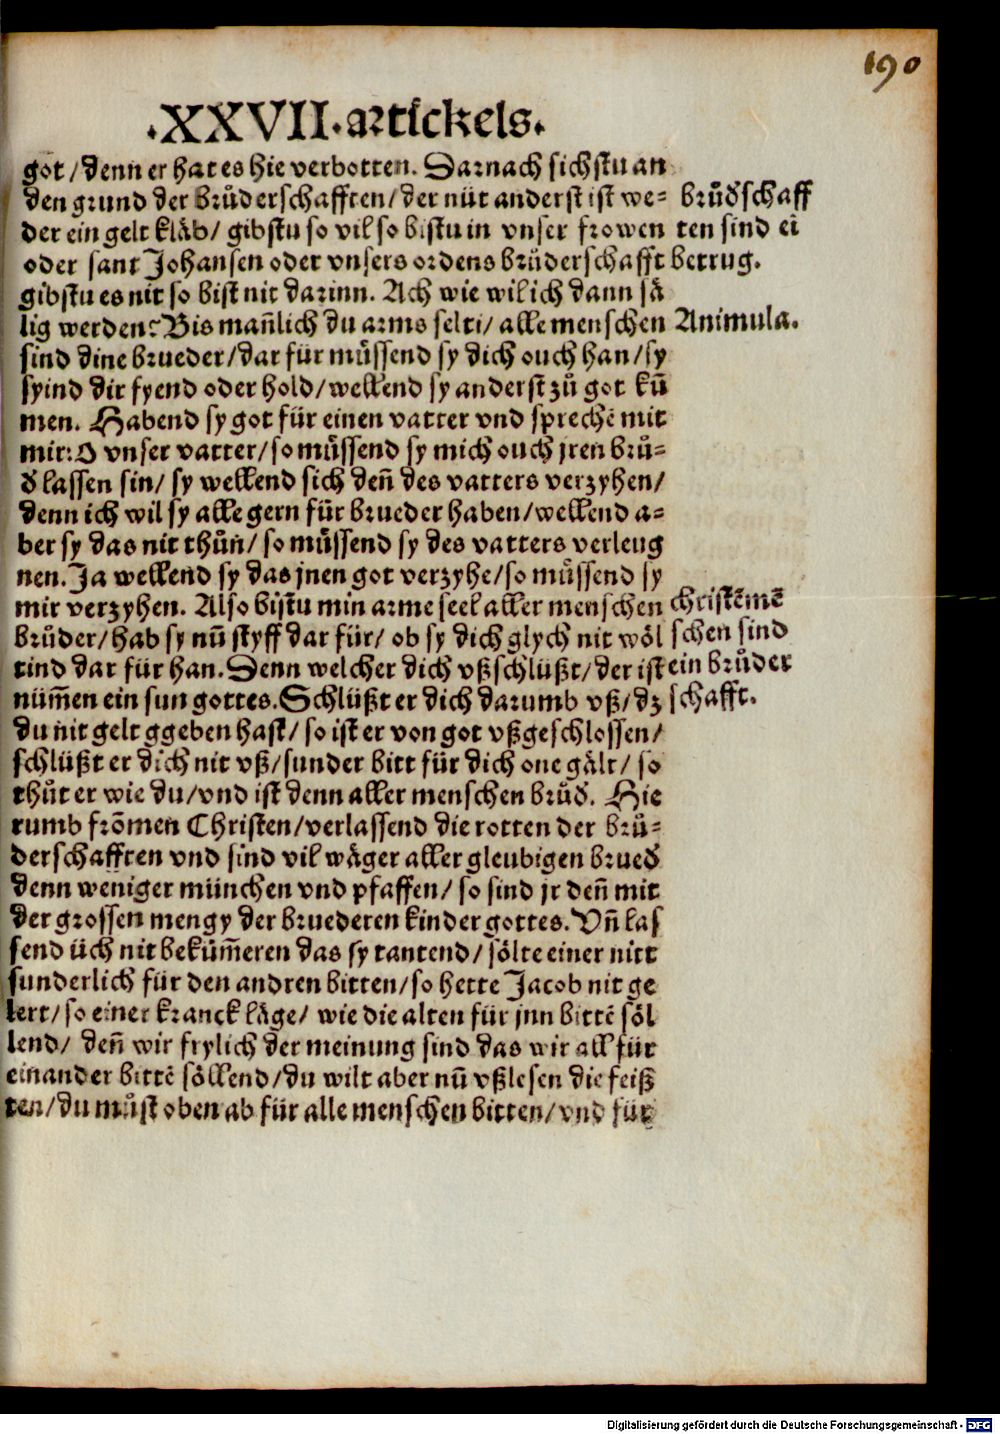 190
.XXVII.artickels.
got/denn er hat es hie verbotten. Darnach sichstu an
den grund der brůderschafften/der nüt anderst ist we=
brůdschaff
der ein gelt kläb/ gibstu so vil so bistu in vnser frowen
ten sind ei
oder sant Johansen oder vnsers ordens brůderschafft
betrug.
gibstu es nit so bist nit darinn. Ach wie wil ich dann sä
lig werden? Bis mañlich du arms selti/ alle menschen
Animula.
sind dine brueder/dar für můssend sy dich ouch han/sy
syind dir fyend oder hold/wellend sy anderst zů got kū
men. Habend sy got für einen vatter vnd sprechē mit
mir: O vnser vatter/so můssend sy mich ouch jren brů=
d lassen sin/ sy wellend sich deñ des vatters verzyhen/
denn ich wil sy alle gern für brueder haben/wellend a=
ber sy das nit thůn/ so můssend sy des vatters verleug
nen. Ja wellend sy das jnen got verzyhe/so můssend sy
mir verzyhen. Also bistu min arme seel aller menschen
christēmē
brůder/hab sy nū styff dar für/ ob sy dich glych nit wöl
schen sind
tind dar für han. Denn welcher dich vßschlüßt/der ist
ein brůder
nüm̄en ein sun gottes. Schlüßt er dich darumb vß/dz
schafft.
du nit gelt ggeben hast/ so ist er von got vßgeschlossen/
schlüßt er dich nit vß/sunder bitt für dich one gält/ so
thůt er wie du/vnd ist denn aller menschen brůd. Hie
rumb frōmen Christen/verlassend die rotten der brů=
derschafften vnd sind vil wäger aller gleubigen brued
denn weniger münchen vnd pfaffen/ so sind jr deñ mit
der grossen mengy der bruederen kinder gottes. Vñ las
send üch nit bekūm̄eren das sy tantend/ sölte einer nitt
sunderlich für den andren bitten/so hette Jacob nit ge
lert/so einer kranck läge/ wie die alten für jnn bittē söl
lend/ deñ wir frylich der meinung sind das wir all für
einander bittē söllend/du wilt aber nū vßlesen die feiß
ten/du můst oben ab für alle menschen bitten/vnd für
Digitalisierung gefördert durch die Deutsche Forschungsgemeinschaft - DFG